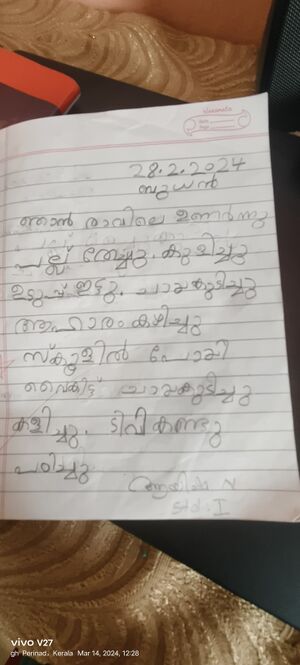 classmate
Date
Page
28.2.2024
ബുധൻ
ഞാൻ രാവിലെ ഉണർന്നു
പല്ല് തേച്ചു. കുളിച്ചു
ഉടുപ്പ് ഇട്ടു. ചായകുടിച്ചു
ആഹാരംകഴിച്ചു
സ്കൂളിൽ പോയി
വൈകിട്ട് ചായകുടിച്ചു
കളിച്ചു. ടിവി കണ്ടു
പഠിച്ചു
N
Std: I
vivo V27
gh Perinad, Kerala Mar 14, 2024, 12:28